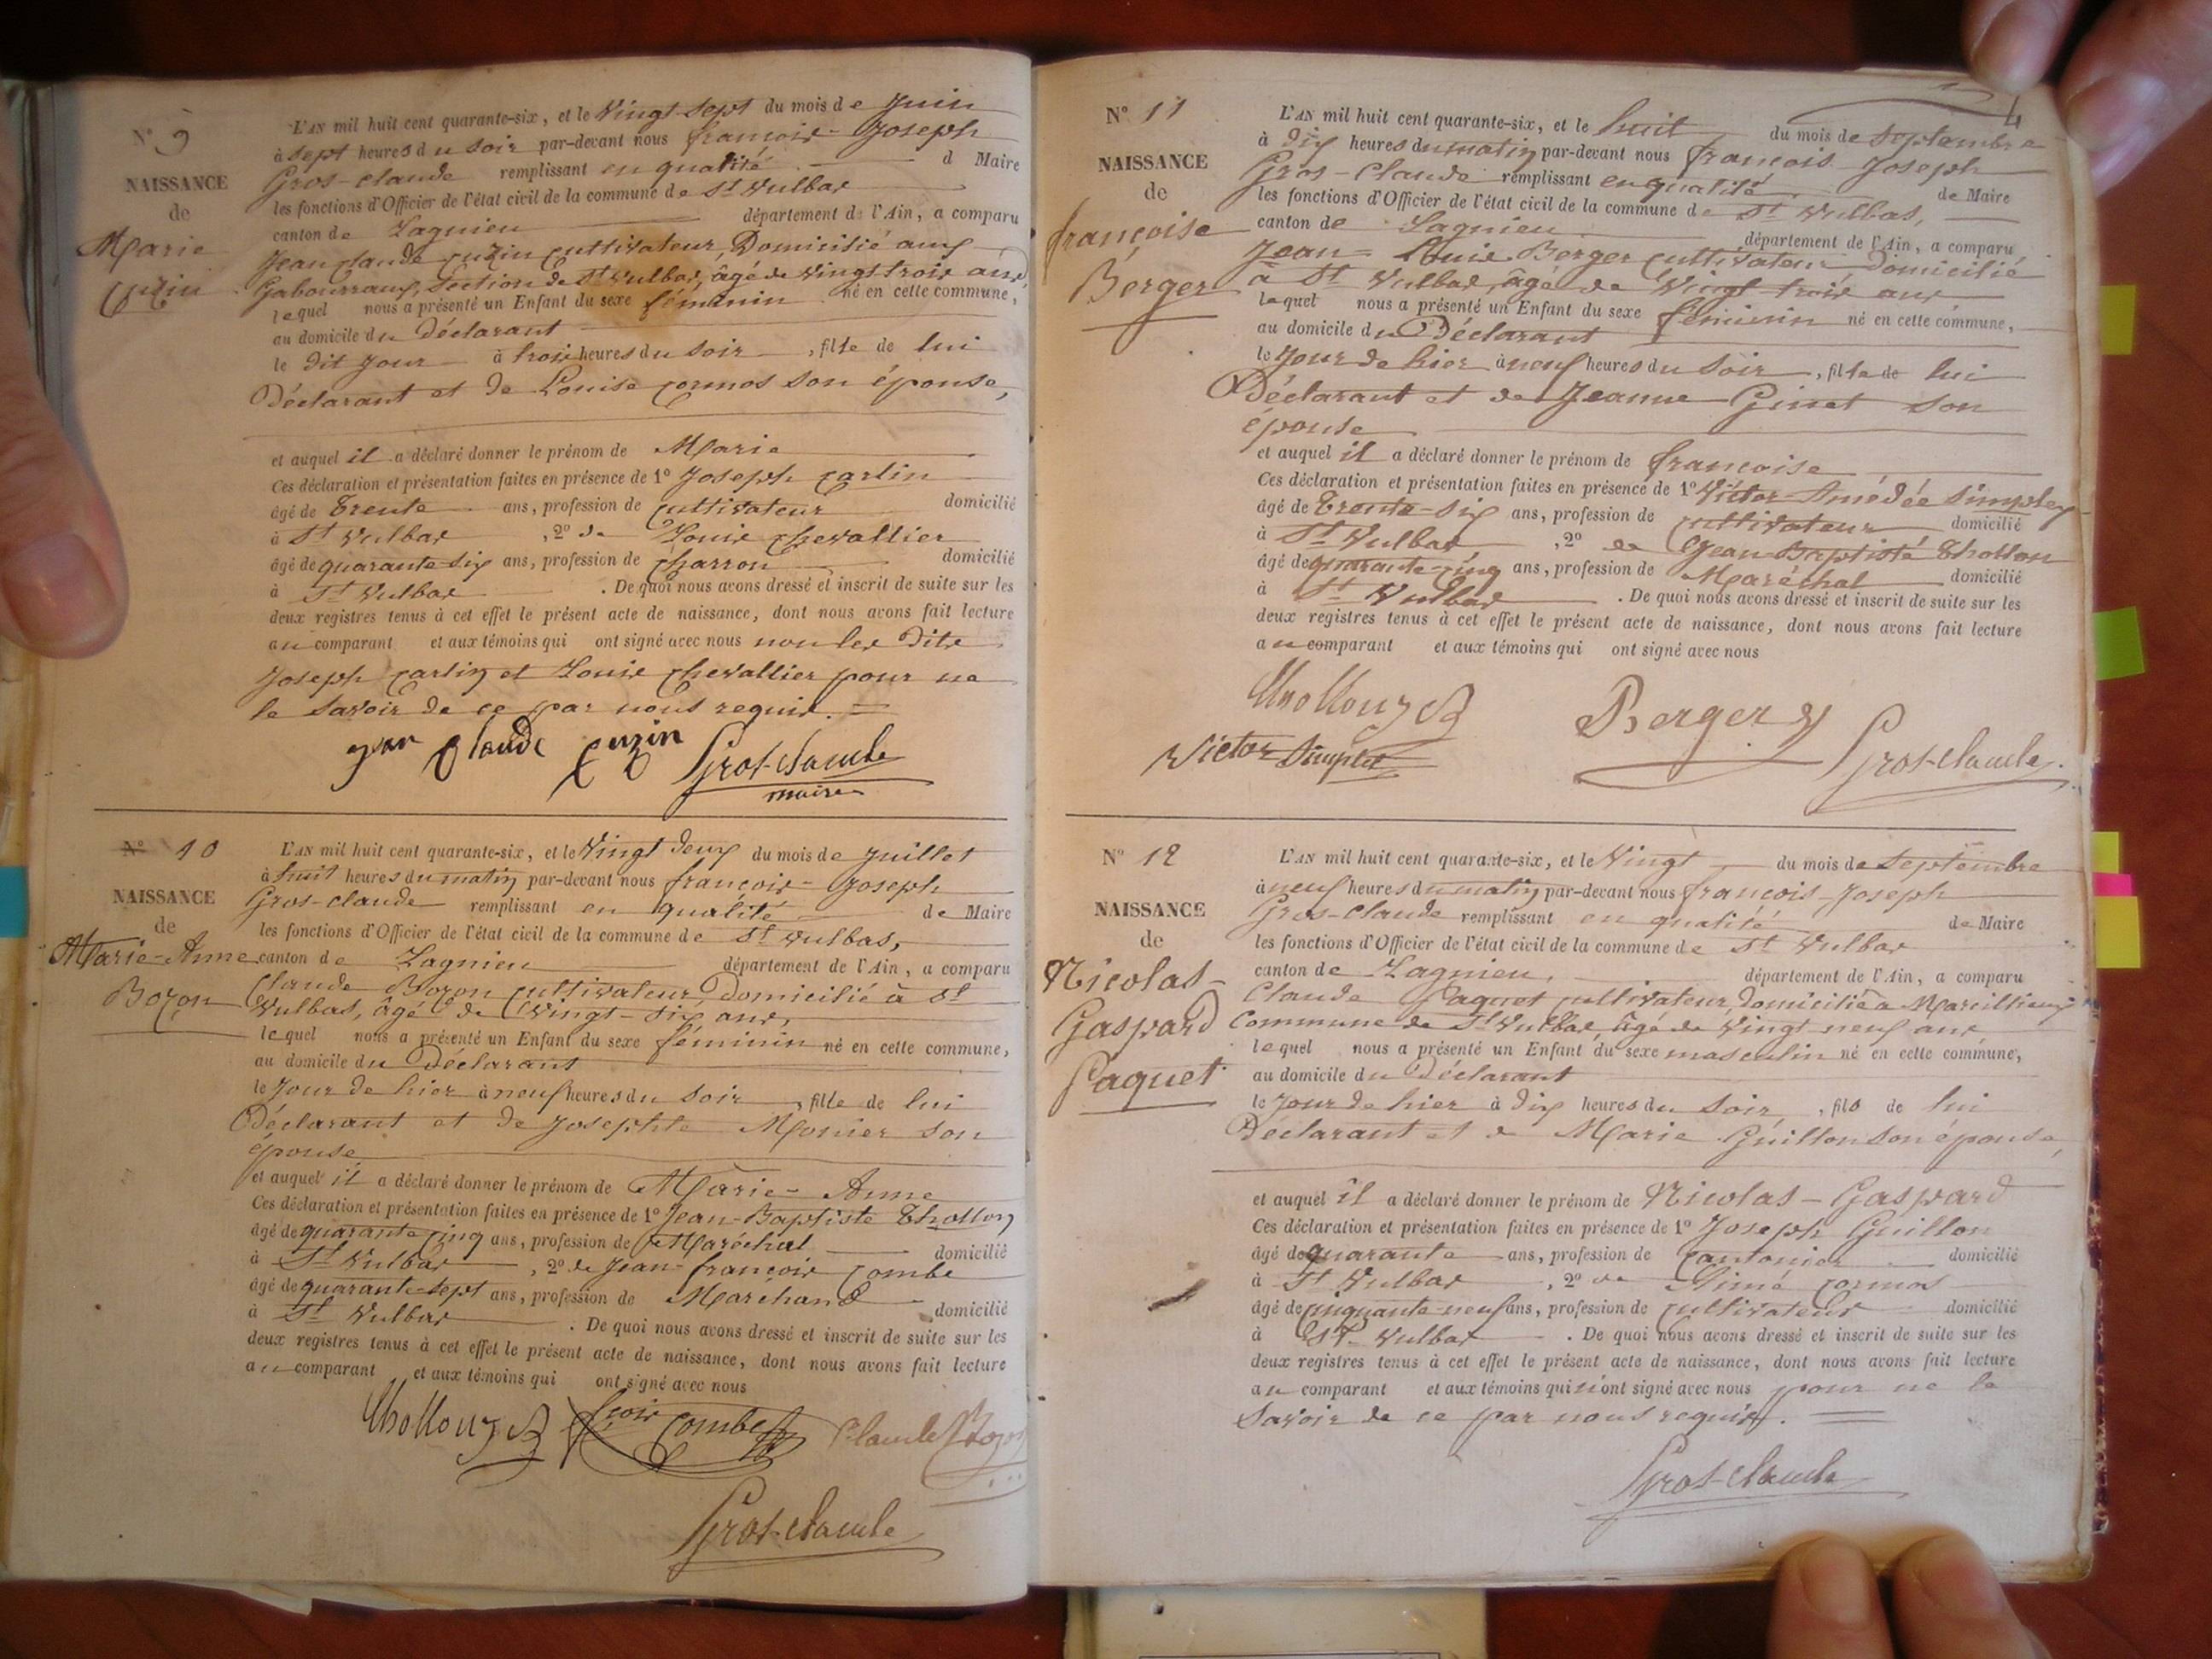 N° 9
NAISSANCE
de
Marie
Cuzin
L'AN mil huit cent quarante-six, et le Vingt-Sept du mois de Juin
à Sept heures du soir par-devant nous françois-Joseph
Gros-claude remplissant en qualité d Maire
les fonctions d'Officier de l'état civil de la commune de St Vulbas
canton de Lagnieu département de l'Ain, a comparu
Jean claude Cuzin Cultivateur, Domicilié aux
Gaboureaux, Section de St Vulbas, âgé de Vingt trois ans,
lequel nous a présenté un Enfant du sexe féminin né en cette commune,
au domicile du Déclarant
le dit Jour à trois heures du soir, fille de lui
Déclarant et de Louise Cormos son épouse,
et auquel il a déclaré donner le prénom de Marie
Ces déclaration et présentation faites en présence de 1° Joseph Carlin
âgé de Trente ans, profession de Cultivateur domicilié
à St Vulbas, 2° de Louis Chevallier
âgé de quarante six ans, profession de Charron domicilié
à St Vulbas. De quoi nous avons dressé et inscrit de suite sur les
deux registres tenus à cet effet le présent acte de naissance, dont nous avons fait lecture
au comparant et aux témoins qui ont signé avec nous non les Dits
Joseph Carlin et Louis Chevallier pour ne
le Savoir de ce par nous requis.
jean Claude Cuzin Gros-Claude
maire
N° 10
NAISSANCE
de
Marie-Anne
Bozon
L'AN mil huit cent quarante-six, et le Vingt Deux du mois de Juillet
à huit heures du matin par-devant nous françois-Joseph
Gros-claude remplissant en qualité de Maire
les fonctions d'Officier de l'état civil de la commune de St Vulbas,
canton de Lagnieu département de l'Ain, a comparu
Claude Bozon Cultivateur, Domicilié à St
Vulbas, âgé de Vingt-six ans,
lequel nous a présenté un Enfant du sexe féminin né en cette commune,
au domicile du Déclarant
le Jour de hier à neuf heures du soir, fille de lui
Déclarant et de Josephte Monier son
épouse
et auquel il a déclaré donner le prénom de Marie-Anne
Ces déclaration et présentation faites en présence de 1° Jean-Baptiste Thollon
âgé de quarante cinq ans, profession de Maréchal domicilié
à St Vulbas, 2° de Jean-françois Combe
âgé de quarante-sept ans, profession de Marchand domicilié
à St Vulbas. De quoi nous avons dressé et inscrit de suite sur les
deux registres tenus à cet effet le présent acte de naissance, dont nous avons fait lecture
au comparant et aux témoins qui ont signé avec nous
Thollon JB fçois Combe Claude Bozon
Gros-Claude
N° 11
NAISSANCE
de
françoise
Berger
L'AN mil huit cent quarante-six, et le huit du mois de Septembre
à Dix heures du matin par-devant nous françois-Joseph
Gros-Claude remplissant en qualité de Maire
les fonctions d'Officier de l'état civil de la commune de St Vulbas,
canton de Lagnieu département de l'Ain, a comparu
Jean Louis Berger Cultivateur, Domicilié
à St Vulbas, âgé de Vingt trois ans
lequel nous a présenté un Enfant du sexe féminin né en cette commune,
au domicile du Déclarant
le Jour de hier à neuf heures du Soir, fille de lui
Déclarant et de Jeanne Ginet son
épouse
et auquel il a déclaré donner le prénom de françoise
Ces déclaration et présentation faites en présence de 1° Victor-Amédée Simplex
âgé de Trente-six ans, profession de Cultivateur domicilié
à St Vulbas, 2° de Jean-Baptiste Thollon
âgé de quarante-cinq ans, profession de Maréchal domicilié
à St Vulbas. De quoi nous avons dressé et inscrit de suite sur les
deux registres tenus à cet effet le présent acte de naissance, dont nous avons fait lecture
au comparant et aux témoins qui ont signé avec nous
Thollon JB Berger
Victor Simplex Gros-Claude
N° 12
NAISSANCE
de
Nicolas-
Gaspard
Paquet
L'AN mil huit cent quarante-six, et le Vingt du mois de Septembre
à neuf heures du matin par-devant nous françois-Joseph
Gros-Claude remplissant en qualité de Maire
les fonctions d'Officier de l'état civil de la commune de St Vulbas
canton de Lagnieu, département de l'Ain, a comparu
Claude Paquet Cultivateur, Domicilié à Marcillieux
Commune de St Vulbas, âgé de Vingt-neuf ans
lequel nous a présenté un Enfant du sexe masculin né en cette commune,
au domicile du Déclarant
le Jour de hier à dix heures du Soir, fils de lui
Déclarant et de Marie Guillon son épouse,
et auquel il a déclaré donner le prénom de Nicolas-Gaspard
Ces déclaration et présentation faites en présence de 1° Joseph Guillon
âgé de quarante ans, profession de Cantonier domicilié
à St Vulbas, 2° de Aimé Cormos
âgé de cinquante-neuf ans, profession de Cultivateur domicilié
à St Vulbas. De quoi nous avons dressé et inscrit de suite sur les
deux registres tenus à cet effet le présent acte de naissance, dont nous avons fait lecture
au comparant et aux témoins qui n'ont signé avec nous pour ne le
Savoir de ce par nous requis.
Gros-Claude